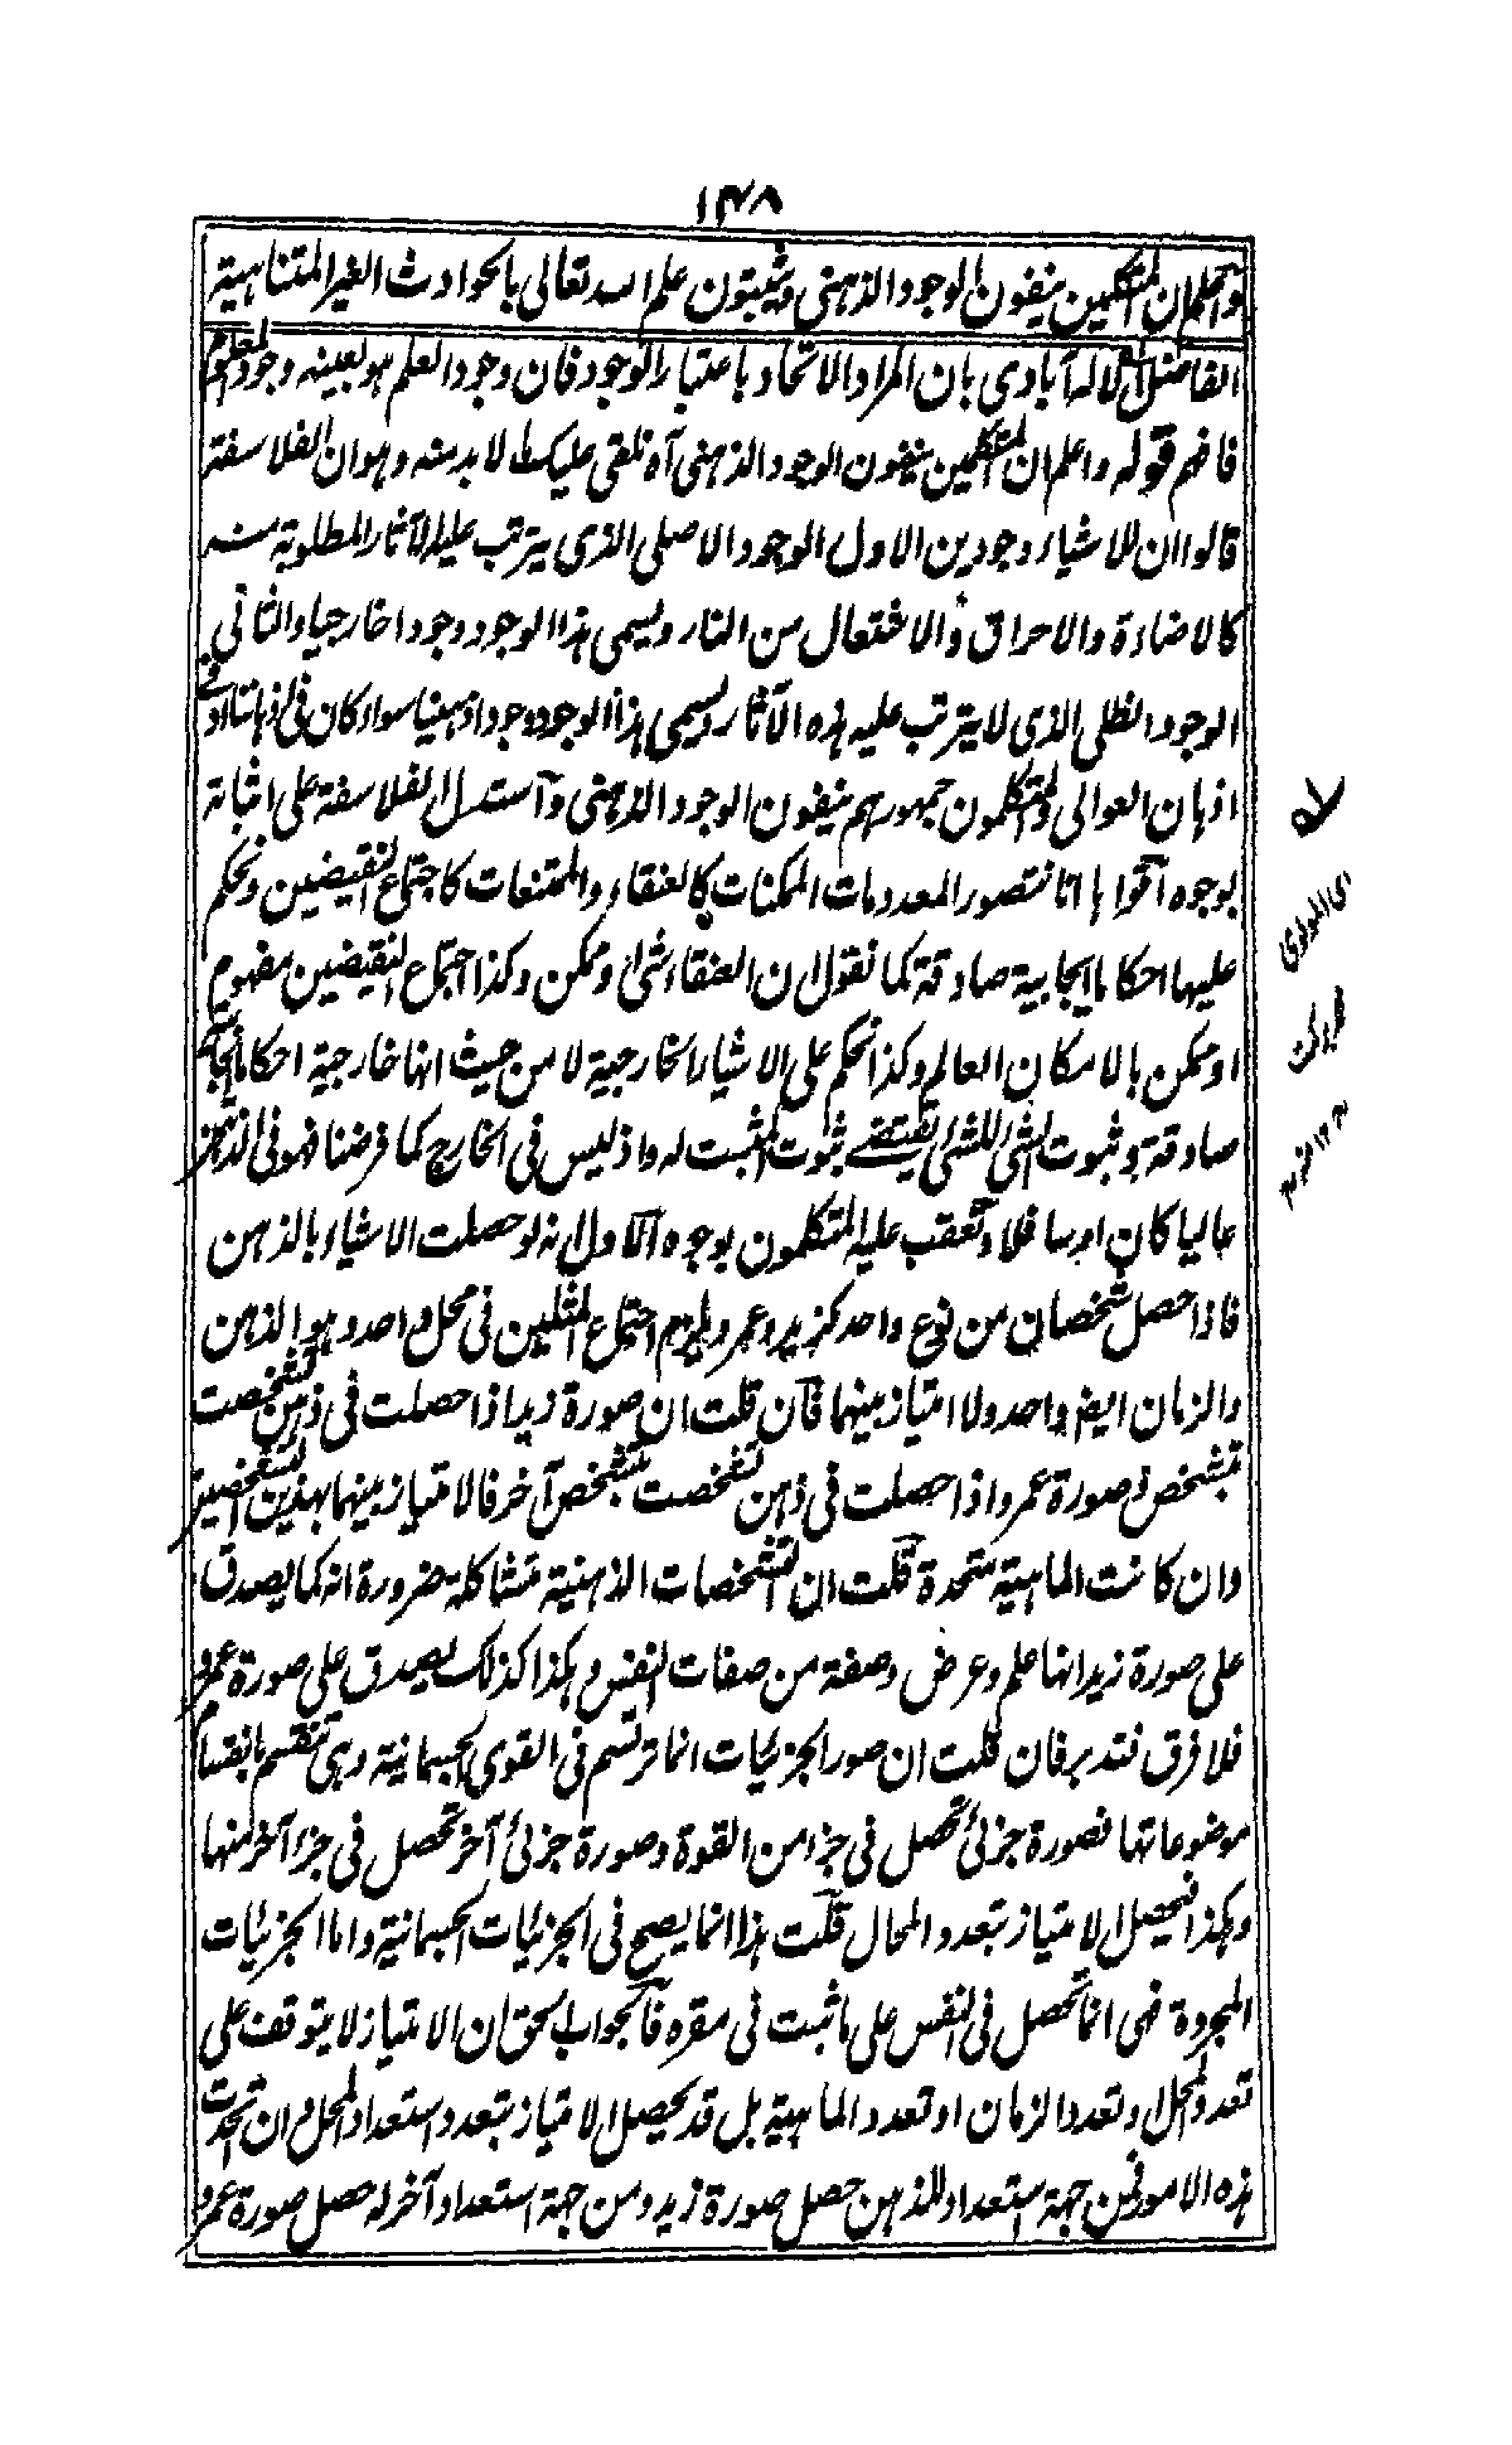 ۱۴۸
واعلم ان المتكلمين ينفون الوجود الذهني ويثبتون علم الله تعالى بالحوادث الغير المتناهية
الفاضل الاله آبادي بان المراد الاتحاد باعتبار الوجود فان وجود العلم هو بعينه وجود المعلوم
فافهم قوله واعلم ان المتكلمين ينفون الوجود الذهني آه نلقي عليك ما لا بد منه وهو ان الفلاسفة
قالوا ان للاشياء وجودين الاول الوجود الاصلي الذي يترتب عليه الآثار المطلوبة منه
كالاضاءة والاحراق والاشتعال من النار ويسمى هذا الوجود وجودا خارجيا والثاني
الوجود الظلي الذي لا يترتب عليه هذه الآثار ويسمى هذا الوجود وجودا ذهنيا سواء كان في اذهاننا او في
اذهان العوالي والمتكلمون جمهورهم ينفون الوجود الذهني واستدل الفلاسفة على اثباته
بوجوه اقواها انا نتصور المعدومات الممكنات كالعنقاء والممتنعات كاجتماع النقيضين ونحكم
عليها احكاما ايجابية صادقة كما نقول ان العنقاء شئ او ممكن وكذا اجتماع النقيضين مفهوم
او ممكن بالامكان العام وكذا نحكم على الاشياء الخارجية لا من حيث انها خارجية احكاما ايجابية
صادقة وثبوت الشئ للشئ يقتضي ثبوت المثبت له واذ ليس في الخارج كما فرضنا فهو في الذهن
عاليا كان او سافلا وتعقب عليه المتكلمون بوجوه الاول انه لو حصلت الاشياء بالذهن
فاذا حصل شخصان من نوع واحد كزيد وعمرو يلزم اجتماع المثلين في محل واحد وهو الذهن
والزمان ايضا واحد ولا امتياز بينهما فان قلت ان صورة زيد اذا حصلت في ذهن تشخصت
بتشخص وصورة عمرو اذا حصلت في ذهن تشخصت بتشخص آخر فالامتياز بينهما بهذين التشخصين
وان كانت الماهية متحدة قلت ان التشخصات الذهنية متشاكلة ضرورة انه كما يصدق
على صورة زيد انها علم وعرض وصفة من صفات النفس وهكذا كذلك يصدق على صورة عمرو
فلا فرق فتدبر فان قلت ان صور الجزئيات انما ترتسم في القوى الجسمانية وهي تنقسم بانقسام
موضوعاتها فصورة جزئي تحصل في جزء من القوة وصورة جزئي آخر تحصل في جزء آخر منها
وهكذا فيحصل الامتياز بتعدد المحال قلت هذا انما يصح في الجزئيات الجسمانية واما الجزئيات
المجردة فهي انما تحصل في النفس على ما ثبت في مقره فالجواب الحق ان الامتياز لا يتوقف على
تعدد المحل او تعدد الزمان او تعدد الماهية بل قد يحصل الامتياز بتعدد استعداد المحل وان اتحدت
هذه الامور فمن جهة استعداد للذهن حصل صورة زيد ومن جهة استعداد آخر له حصل صورة عمرو